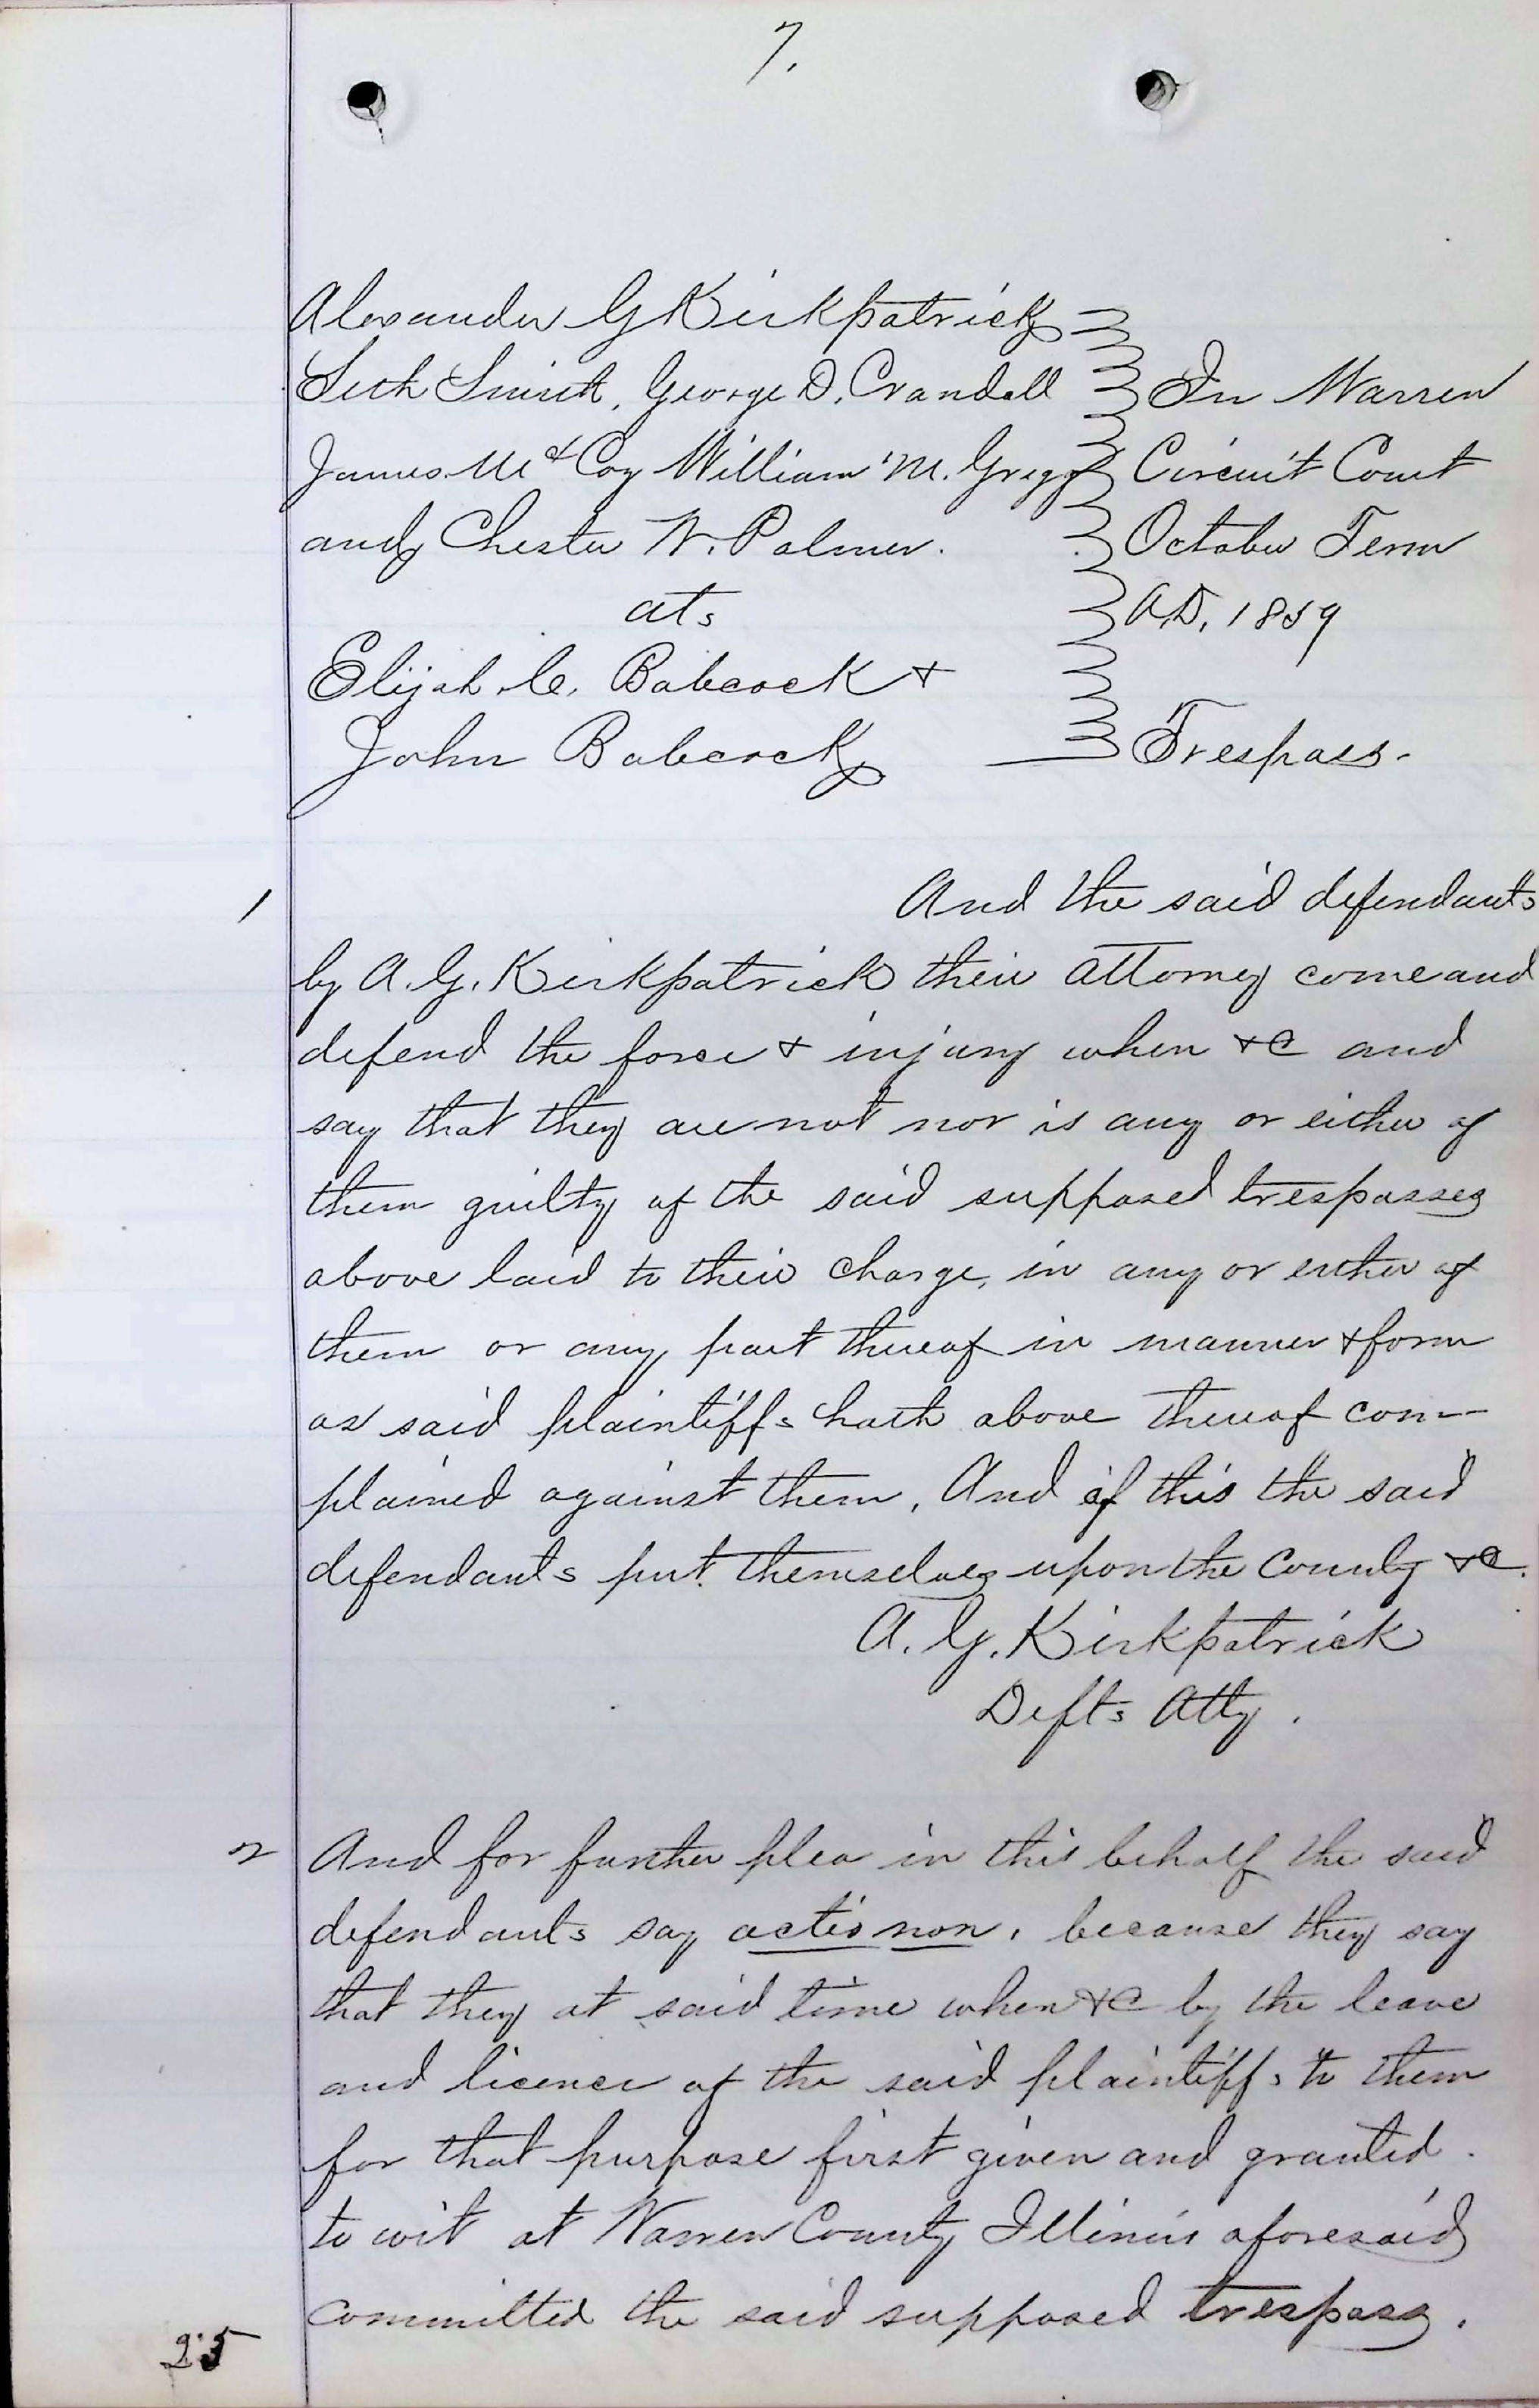 7.
Alexander G Kirkpatrick
Seth Smith, George D. Crandall
James McCoy William M. Gregg
and Chester W. Palmer.
ats
Elijah C. Babcock &
John Babcock
In Warren
Circuit Court
October Term
A.D. 1859
Trespass.
1 And the said defendants
by A. G. Kirkpatrick their attorney come and
defend the force & injury when &c and
say that they are not nor is any or either of
them guilty of the said supposed trespasses
above laid to their charge, in any or either of
them or any part thereof in manner & form
as said plaintiffs hath above thereof com-
plained against them, And of this the said
defendants put themselves upon the County &c.
A. G. Kirkpatrick
Defts Atty.
2 And for further plea in this behalf the said
defendants say actio non, because they say
that they at said time when &c by the leave
and licence of the said plaintiffs to them
for that purpose first given and granted.
to wit at Warren County Illinois aforesaid
committed the said supposed trespass.
25